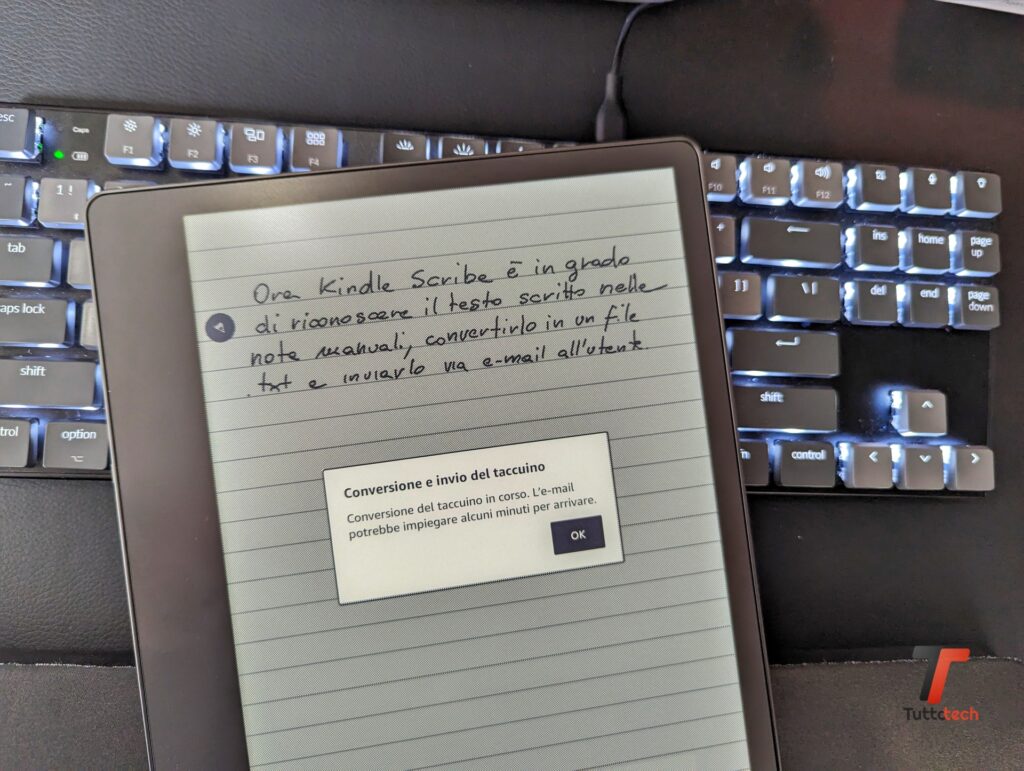 esc
Caps
F1
F2
F3
F4
F10
F11
F12
~
1 !
tab
caps lock
shift
option
ins
home
page up
del
end
page down
shift
control
Ora Kindle Scribe è in grado
di riconoscere il testo scritto nelle
note manuali, convertirlo in un file
.txt e inviarlo via e-mail all'utente
Conversione e invio del taccuino
Conversione del taccuino in corso. L'e-mail
potrebbe impiegare alcuni minuti per arrivare.
OK
Tuttotech